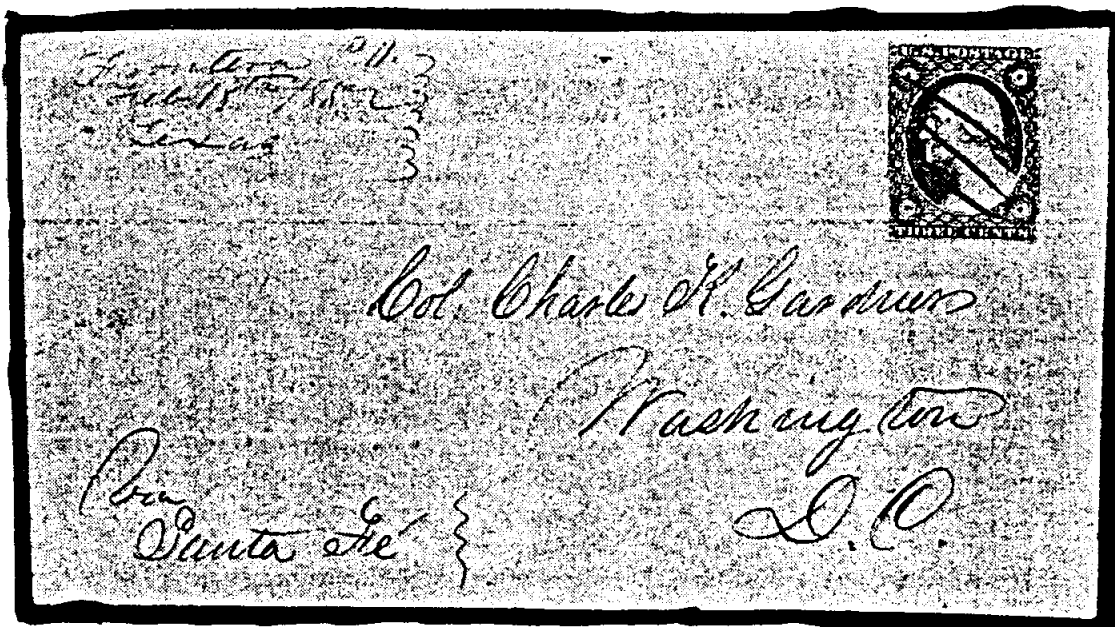 Frontera P.O.
Feb /1852
Texas
U.S. POSTAGE
THREE CENTS
Col. Charles K. Gardner
Washington
D.C.
Via
Santa Fé